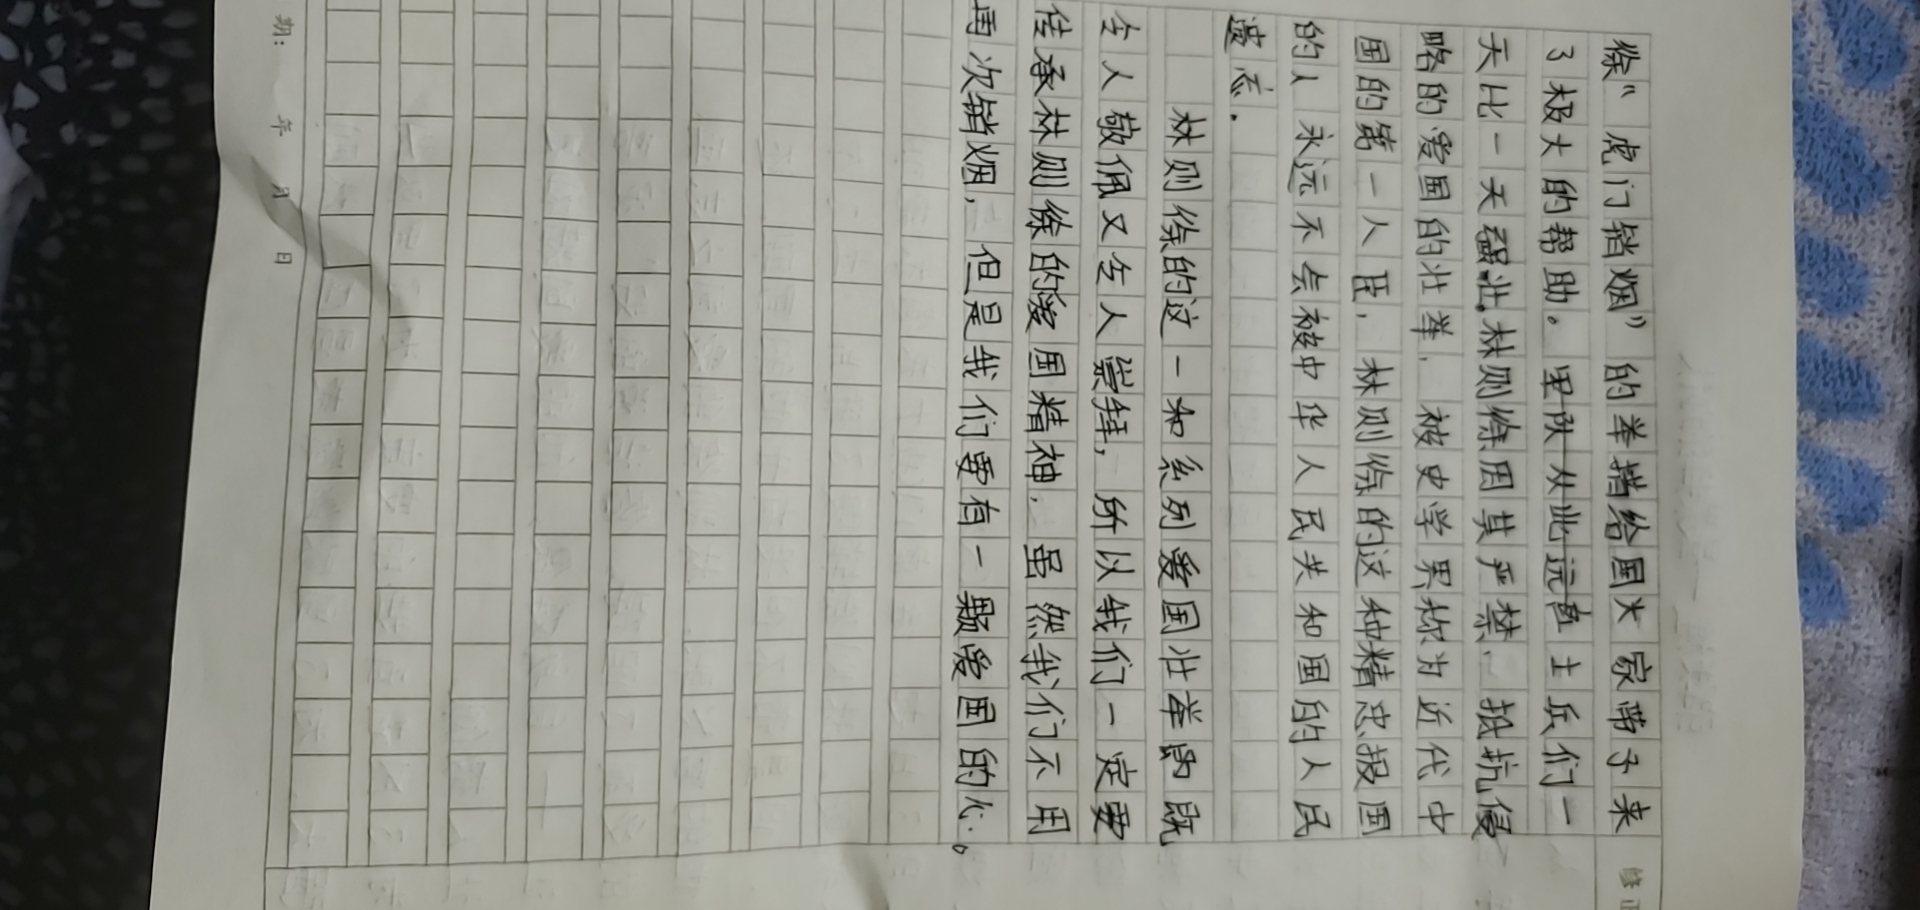 徐“虎门销烟”的举措给国家带来
了极大的帮助。军队从此远离士兵们一
天比一天强壮。林则徐因其严禁、抵抗侵
略的爱国的壮举，被史学界称为近代中
国的第一人臣，林则徐的这种精忠报国
的人永远不会被中华人民共和国的人民
遗忘。
林则徐的这一和系列爱国壮举既
令人敬佩又令人崇拜，所以我们一定要
传承林则徐的爱国精神，虽然我们不用
再次销烟，但是我们要有一颗爱国的心。
期： 年 月 日